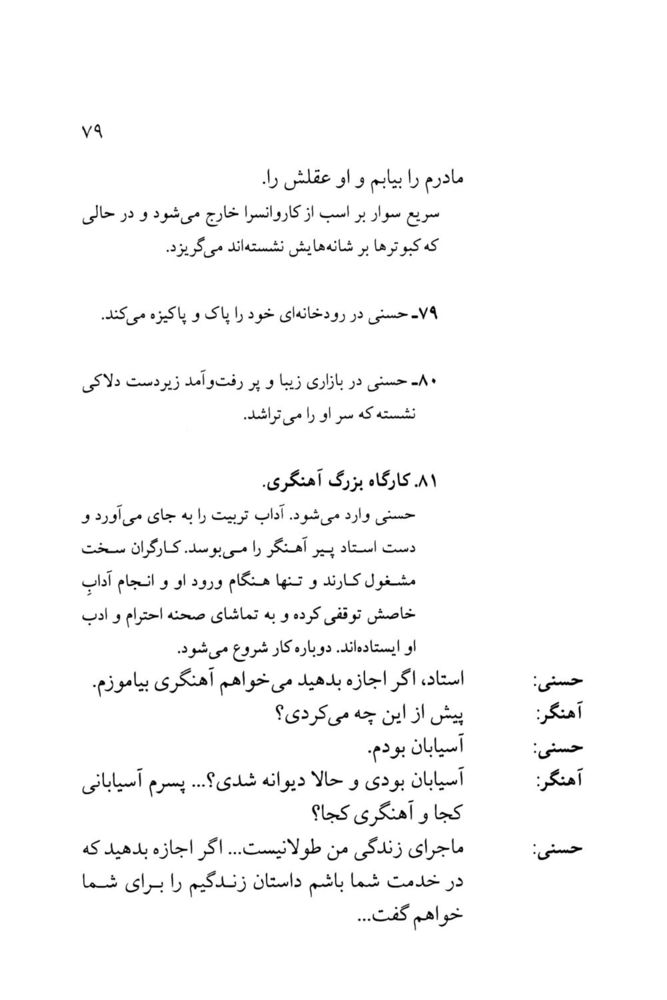 ۷۹
مادرم را بیابم و او عقلش را.
سریع سوار بر اسب از کاروانسرا خارج می‌شود و در حالی
که کبوترها بر شانه‌هایش نشسته‌اند می‌گریزد.
۷۹ـ حسنی در رودخانه‌ای خود را پاک و پاکیزه می‌کند.
۸۰ـ حسنی در بازاری زیبا و پر رفت‌وآمد زیردست دلاکی
نشسته که سر او را می‌تراشد.
۸۱. کارگاه بزرگ آهنگری.
حسنی وارد می‌شود. آداب تربیت را به جای می‌آورد و
دست استاد پیر آهنگر را می‌بوسد. کارگران سخت
مشغول کارند و تنها هنگام ورود او و انجام آدابِ
خاصش توقفی کرده و به تماشای صحنه احترام و ادب
او ایستاده‌اند. دوباره کار شروع می‌شود.
حسنی: استاد، اگر اجازه بدهید می‌خواهم آهنگری بیاموزم.
آهنگر: پیش از این چه می‌کردی؟
حسنی: آسیابان بودم.
آهنگر: آسیابان بودی و حالا دیوانه شدی؟... پسرم آسیابانی
کجا و آهنگری کجا؟
حسنی: ماجرای زندگی من طولانیست... اگر اجازه بدهید که
در خدمت شما باشم داستان زندگیم را برای شما
خواهم گفت...